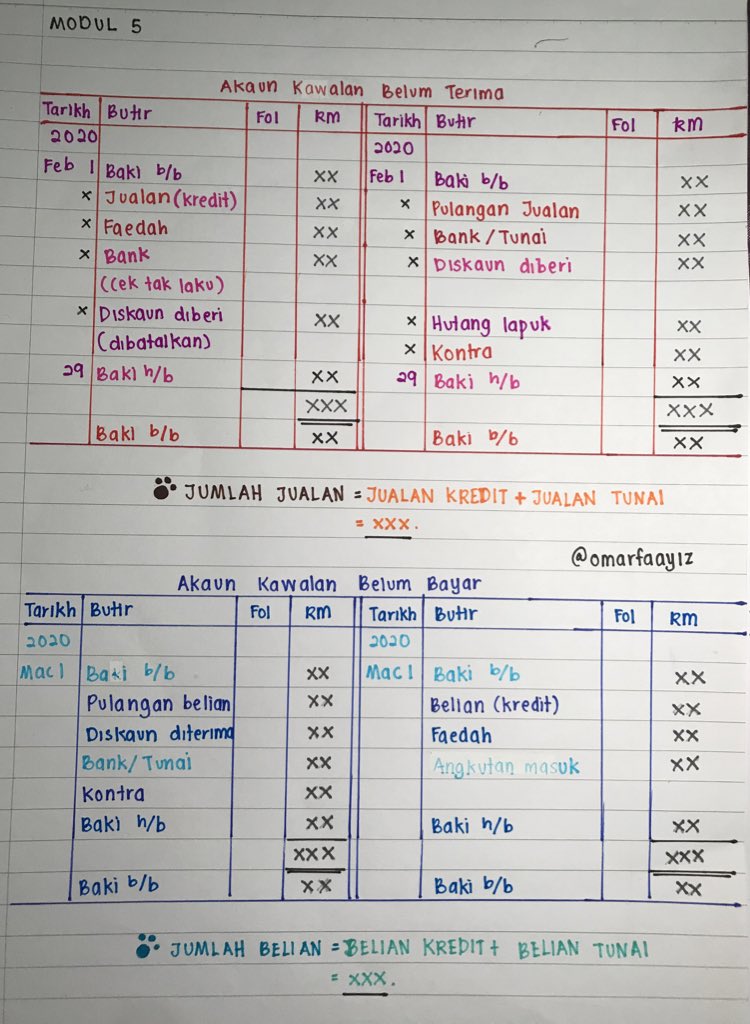 MODUL 5
Akaun Kawalan Belum Terima
Tarikh Butir Fol RM Tarikh Butir Fol RM
2020 2020
Feb 1 Baki b/b XX Feb 1 Baki b/b XX
x Jualan (kredit) XX x Pulangan Jualan XX
x Faedah XX x Bank / Tunai XX
x Bank XX x Diskaun diberi XX
(cek tak laku)
x Diskaun diberi XX x Hutang lapuk XX
(dibatalkan) x Kontra XX
29 Baki h/b XX 29 Baki h/b XX
XXX XXX
Baki b/b XX Baki b/b XX
JUMLAH JUALAN = JUALAN KREDIT + JUALAN TUNAI
= XXX.
@omarfaayiz
Akaun Kawalan Belum Bayar
Tarikh Butir Fol RM Tarikh Butir Fol RM
2020 2020
Mac 1 Baki b/b XX Mac 1 Baki b/b XX
Pulangan belian XX Belian (kredit) XX
Diskaun diterima XX Faedah XX
Bank/Tunai XX Angkutan masuk XX
Kontra XX
Baki h/b XX Baki h/b XX
XXX XXX
Baki b/b XX Baki b/b XX
JUMLAH BELIAN = BELIAN KREDIT + BELIAN TUNAI
= XXX.